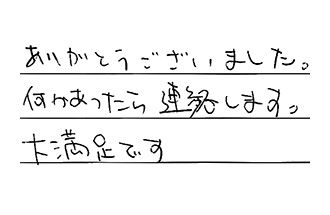 ありがとうございました。
何かあったら連絡します。
大満足です